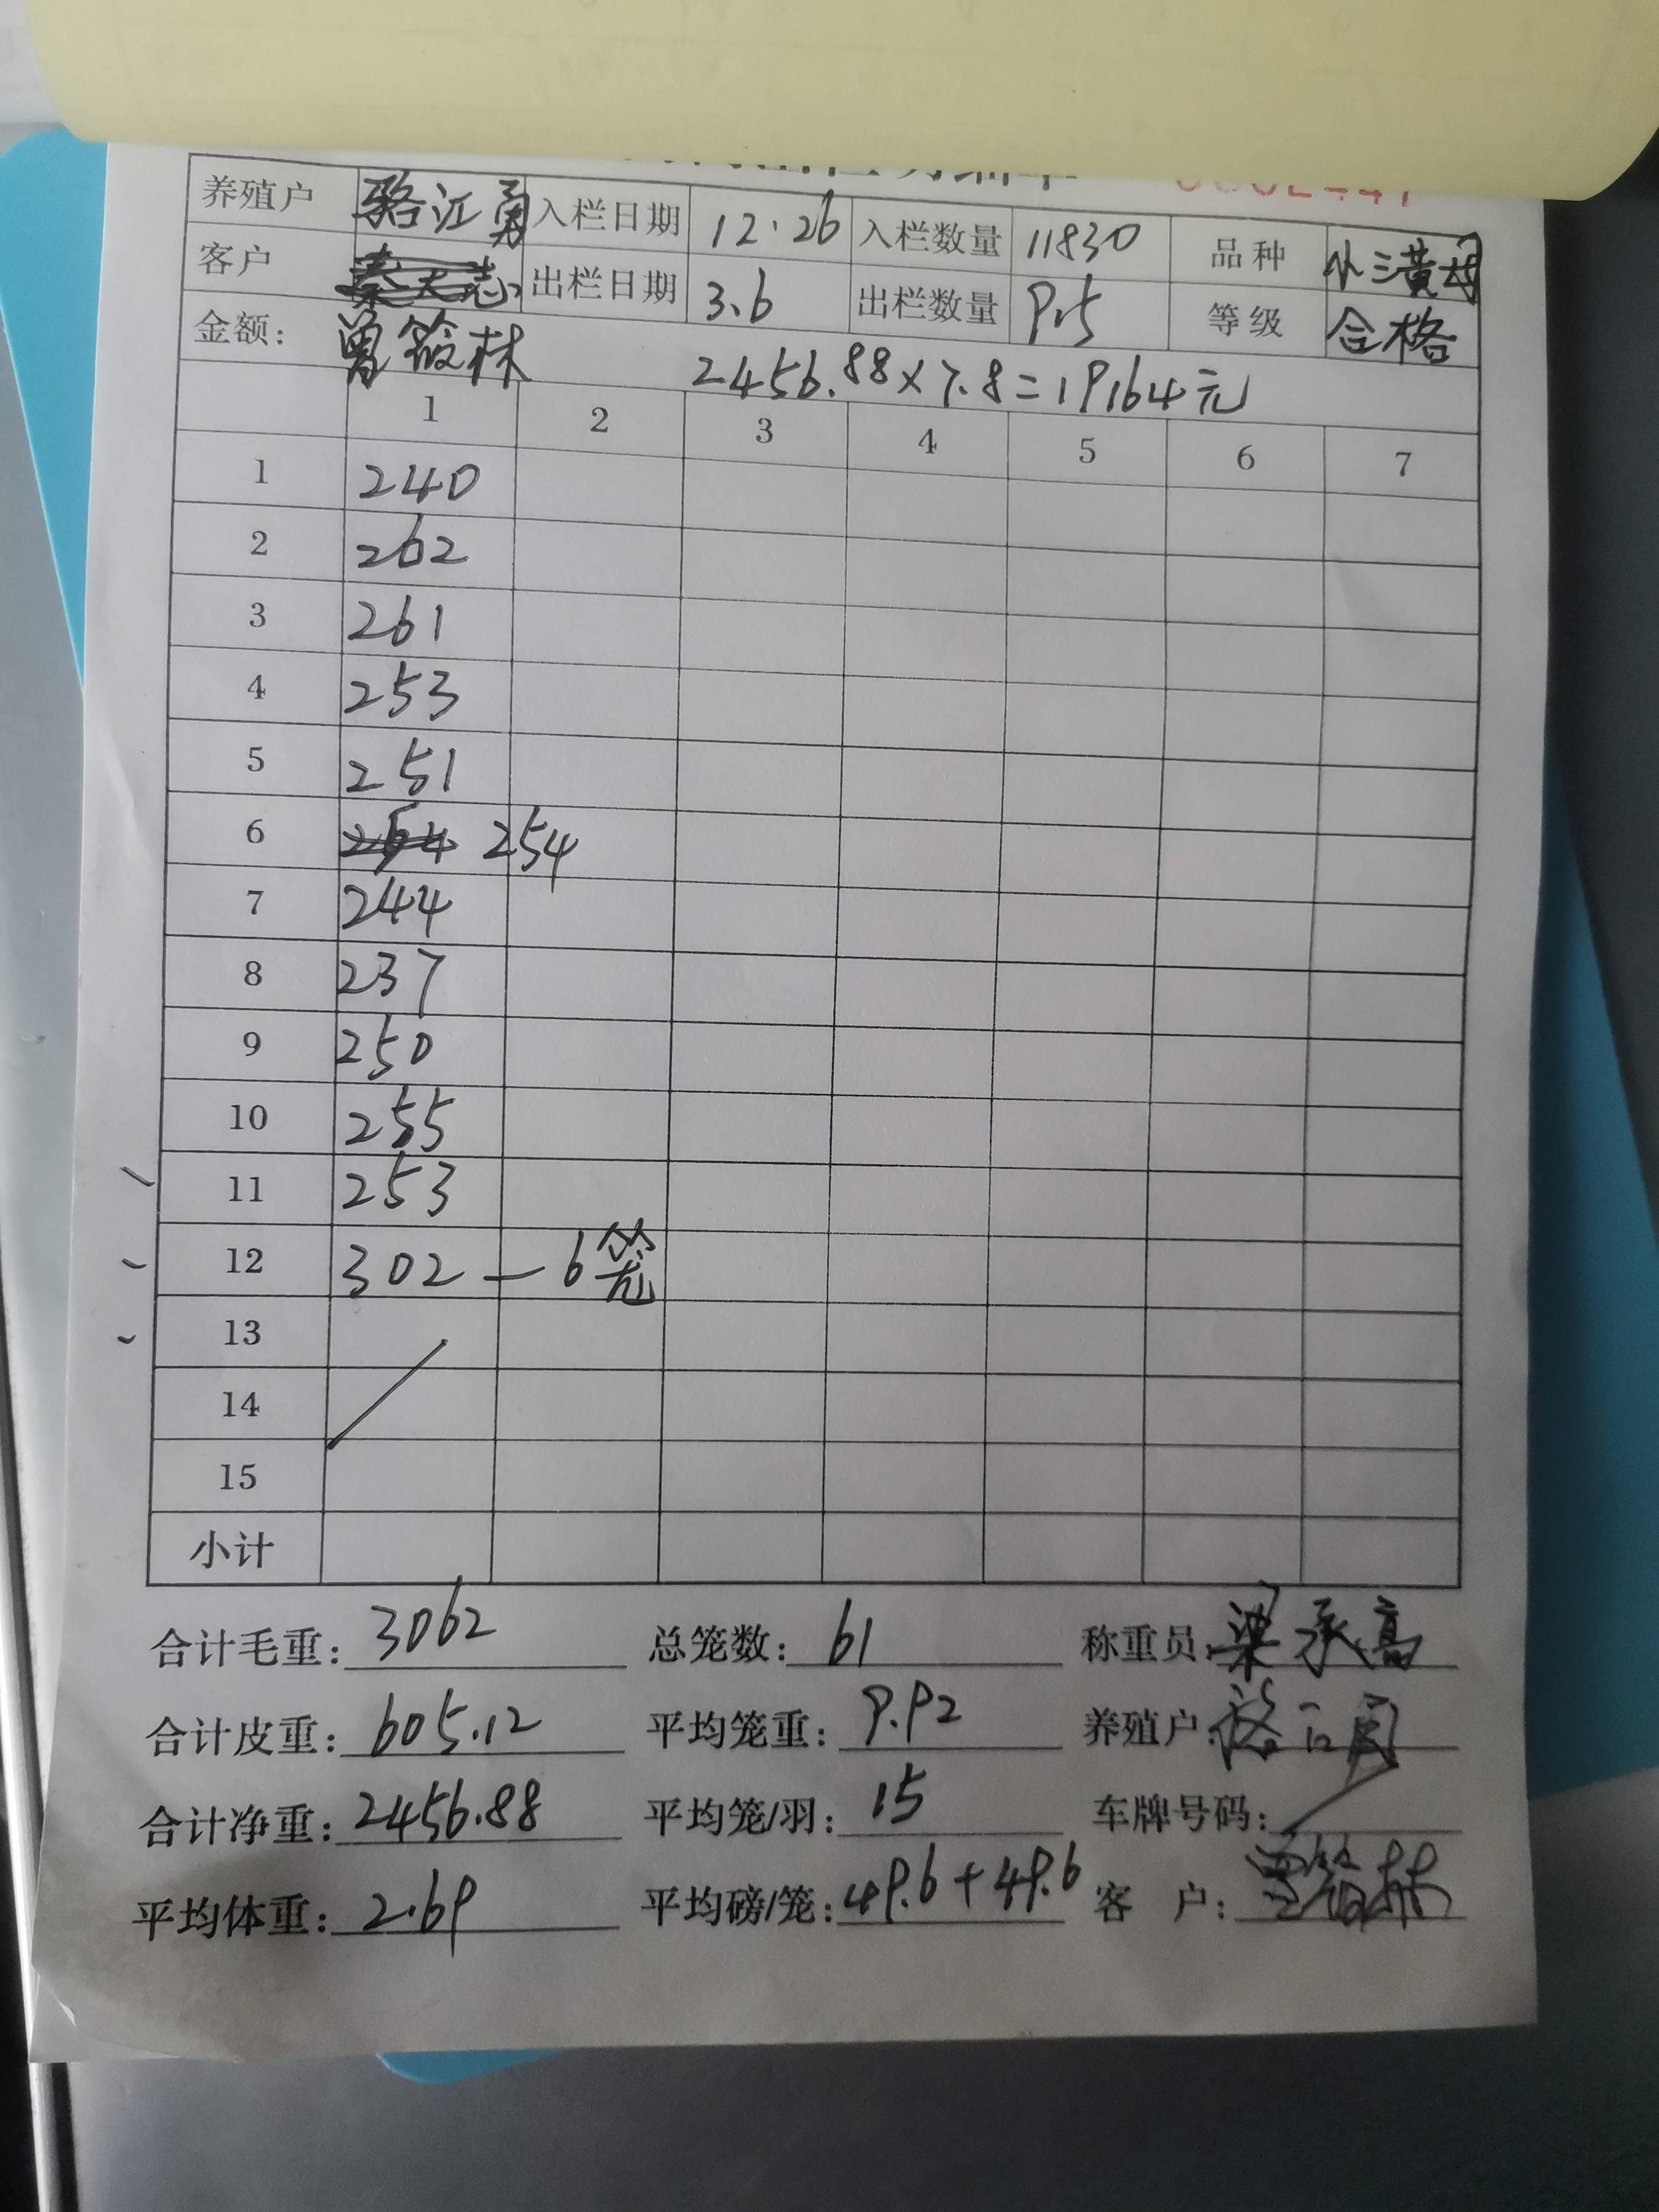 养殖户 骆江勇 入栏日期 12.26 入栏数量 11830 品种 小三黄母
客户 秦天志 出栏日期 3.6 出栏数量 915 等级 合格
金额: 曾筱林 2456.88×7.8=19164元
1 2 3 4 5 6 7
1 240
2 262
3 261
4 253
5 251
6 264 254
7 244
8 237
9 250
10 255
11 253
12 302 — 6笼
13
14
15
小计
合计毛重: 3062 总笼数: 61 称重员: 梁承高
合计皮重: 605.12 平均笼重: 9.92 养殖户:
合计净重: 2456.88 平均笼/羽: 15 车牌号码:
平均体重: 2.69 平均磅/笼: 49.6+49.6 客 户: 曾筱林